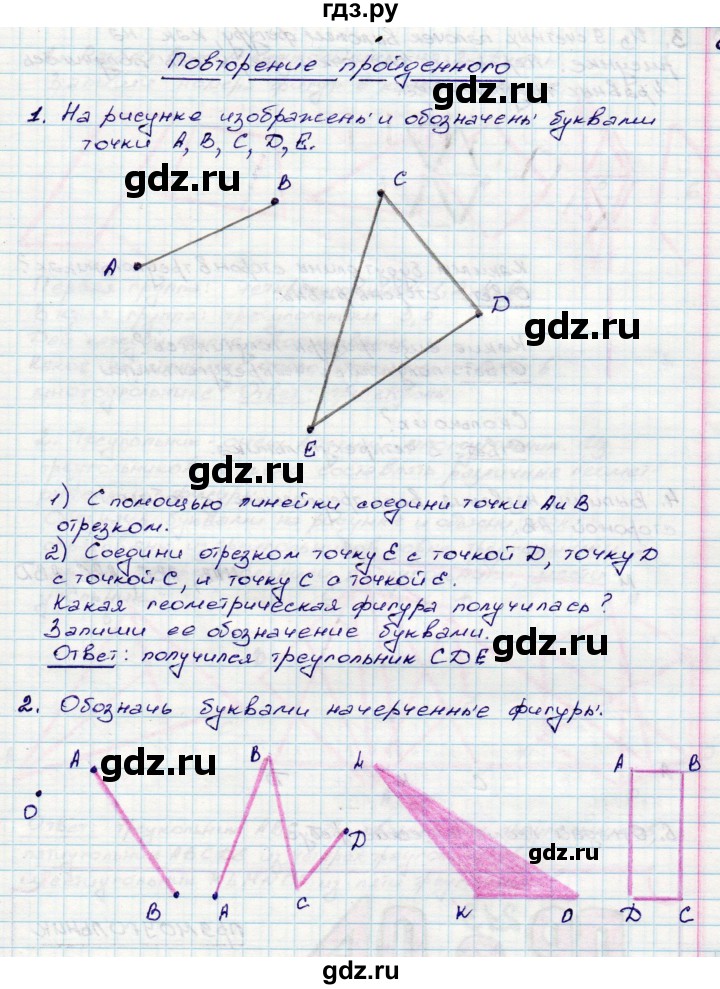 гдз.ру
Повторение пройденного
1. На рисунке изображены и обозначены буквами
точки A, B, C, D, E.
gdz.ru
gdz.ru
B
C
A
D
gdz.ru
E
gdz.ru
1) С помощью линейки соедини точки A и B
отрезком.
2) Соедини отрезком точку E с точкой D, точку D
с точкой C, и точку C с точкой E.
Какая геометрическая фигура получилась?
Запиши ее обозначение буквами.
gdz.ru
Ответ: получился треугольник CDE
2. Обозначь буквами начерченные фигуры.
gdz.ru
A
B
A
B
O
D
gdz.ru
B
A
C
K
O
D
C
gdz.ru
gdz.ru